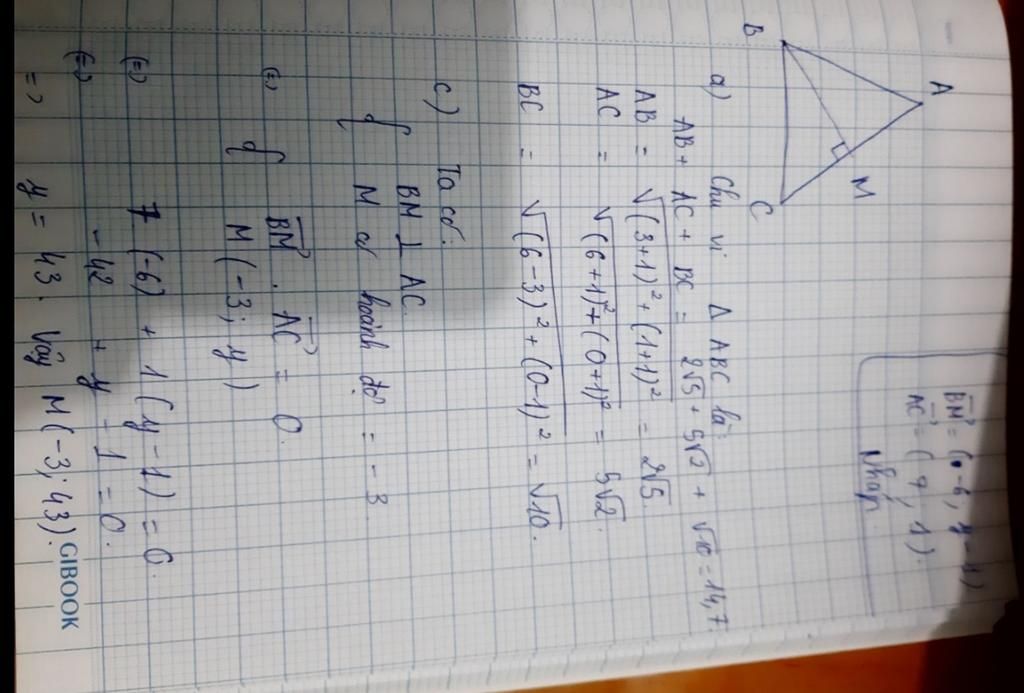 A
B
M
C
BM = (-6, y-1)
AC = (7, 1)
Nháp
a) Chu vi Δ ABC là:
AB + AC + BC = 2√5 + 5√2 + √10 = 14,7.
AB = √(3+1)² + (1+1)² = 2√5.
AC = √(6+1)² + (0+1)² = 5√2.
BC = √(6-3)² + (0-1)² = √10.
c) Ta có:
{ BM ⊥ AC
M có hoành độ = -3
(=) { BM . AC = 0.
M (-3; y)
(=) 7 (-6) + 1 (y-1) = 0.
(=) -42 + y - 1 = 0.
=> y = 43. Vậy M (-3; 43).
GIBOOK